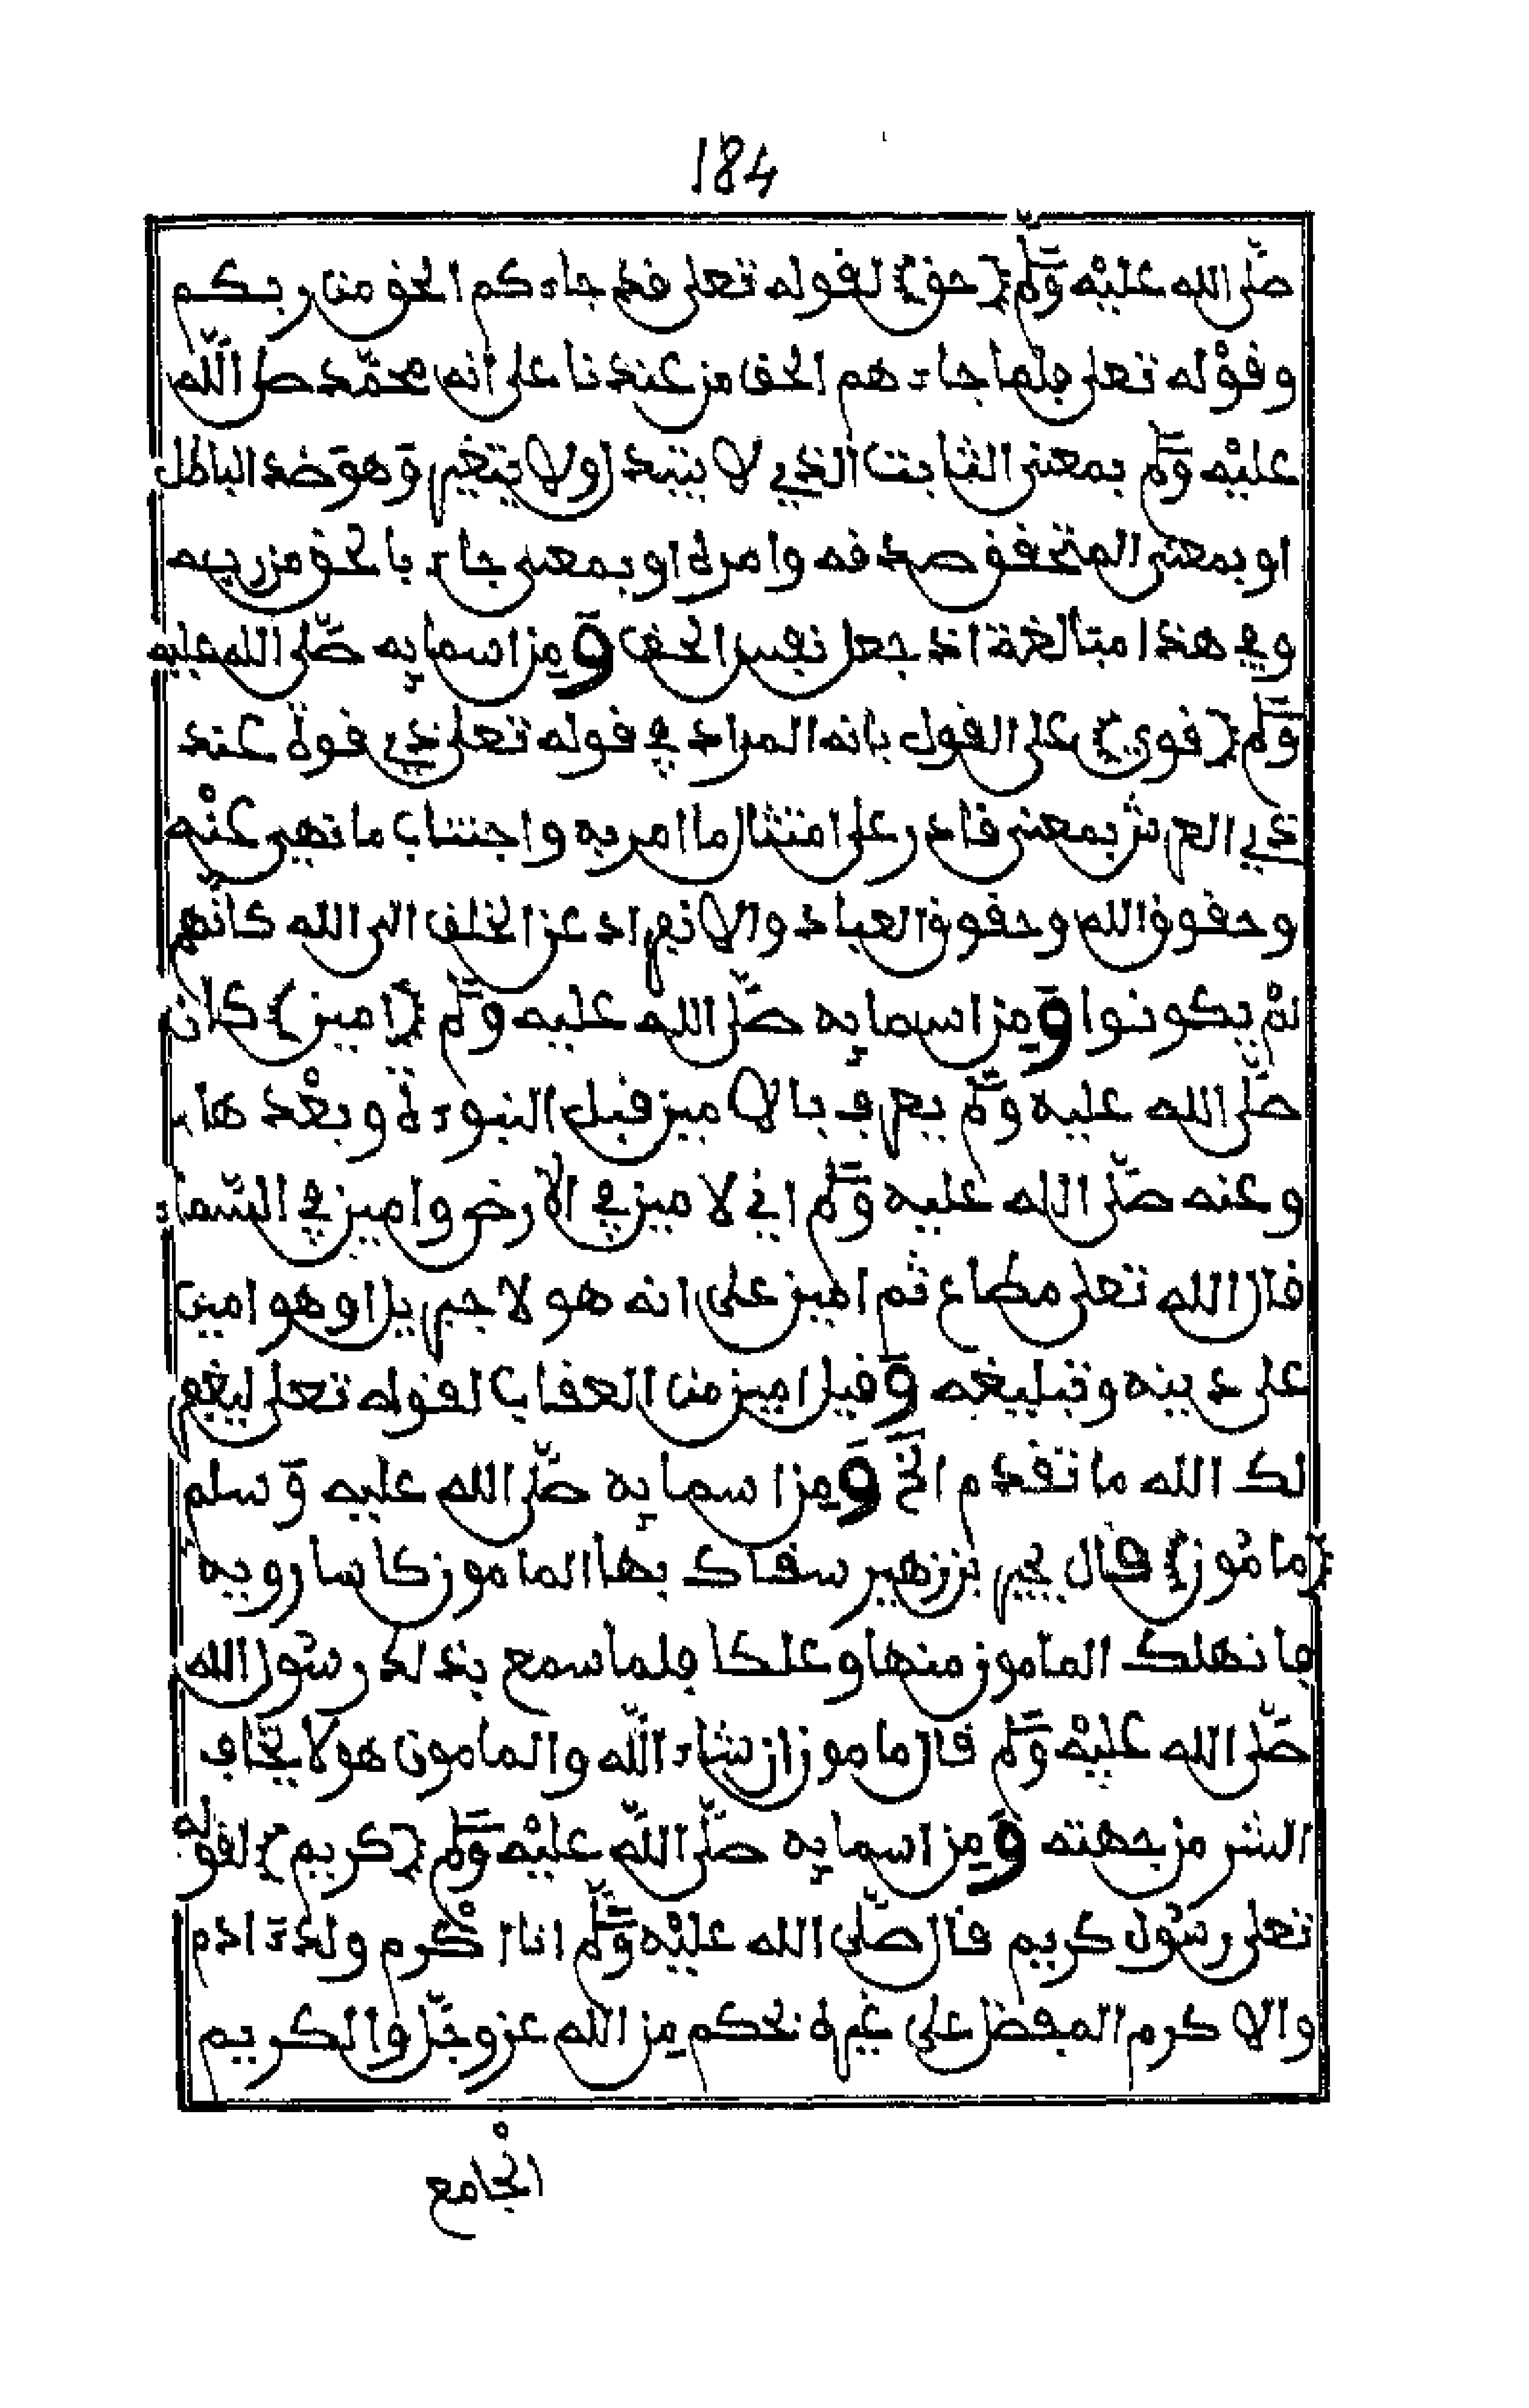 184
صلى الله عليه وسلم (حق) لقوله تعلى قد جاءكم الحق من ربكم
وقوله تعلى فلما جاءهم الحق من عندنا على أنه محمد صلى الله
عليه وسلم بمعنى الثابت الذي لا يتبدل ولا يتغير وهو ضد الباطل
او بمعنى المتحقق صدقه وامره او بمعنى جاء بالحق من ربه
وفي هذا مبالغة اذ جعل نفس الحق ومن اسمايه صلى الله عليه
وسلم (قوي) على القول بانه المراد في قوله تعلى ذي قوة عند
ذي العرش بمعنى قادر على امتثال ما امر به واجتناب ما نهى عنه
وحقوق الله وحقوق العباد والانفراد عن الخلق الى الله كانهم
لم يكونوا ومن اسمايه صلى الله عليه وسلم (امين) كان
صلى الله عليه وسلم يعرف بالامين قبل النبوءة وبعدها
وعنه صلى الله عليه وسلم اني لامين في الارض وامين في السماء
قال الله تعلى مطاع ثم امين على انه هو لا جبريل او هو امين
على دينه وتبليغه وقيل امين من العقاب لقوله تعلى ليغفر
لك الله ما تقدم الخ ومن اسمايه صلى الله عليه وسلم
(مامون) قال بجير بن زهير سقاك بها المامون كاسا روية
فانهلك المامون منها وعلكا فلما سمع بذلك رسول الله
صلى الله عليه وسلم قال مامون ان شاء الله والمامون هو لا يخاف
الشر من جهته ومن اسمايه صلى الله عليه وسلم (كريم) لقوله
تعلى رسول كريم قال صلى الله عليه وسلم انا اكرم ولد ءادم
والاكرم المفضل على غيره بحكم من الله عز وجل والكريم
الجامع